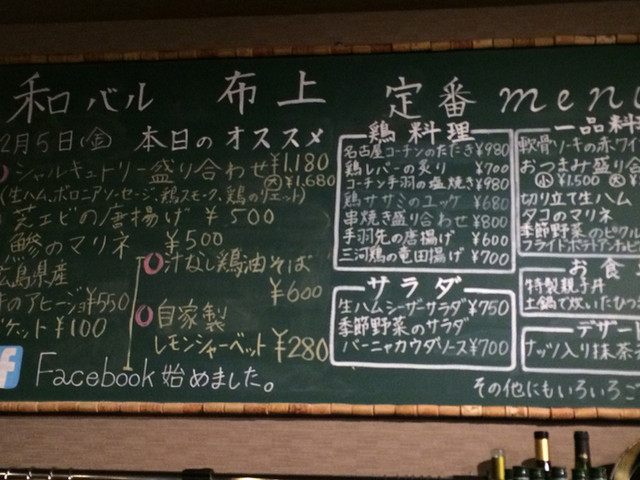 和バル 布上 定番menu
2月5日(金) 本日のオススメ
シャルキュトリー盛り合わせ ¥1,180
(大)¥1,680
(生ハム、ボロニアソーセージ、鶏スモーク、鶏のリエット)
芝エビの唐揚げ ¥500
鯵のマリネ ¥500
広島県産
のアヒージョ ¥550
ケット ¥100
汁なし鶏油そば
¥600
自家製
レモンシャーベット ¥280
Facebook始めました。
鶏料理
名古屋コーチンのたたき ¥980
鶏レバーの炙り ¥700
コーチン手羽の塩焼き ¥980
鶏ササミのユッケ ¥680
串焼き盛り合わせ ¥800
手羽先の唐揚げ ¥600
三河鶏の竜田揚げ ¥700
サラダ
生ハムシーザーサラダ ¥750
季節野菜のサラダ
バーニャカウダソース ¥700
一品料理
軟骨ソーキの赤ワイ
おつまみ盛り合
(小)¥1,500 (大)¥
切り立て生ハム
タコのマリネ
季節野菜のピクル
フライドポテトアンチョビ
お食
特製親子丼
土鍋で炊いたひつ
デザー
ナッツ入り抹茶
その他にもいろいろご